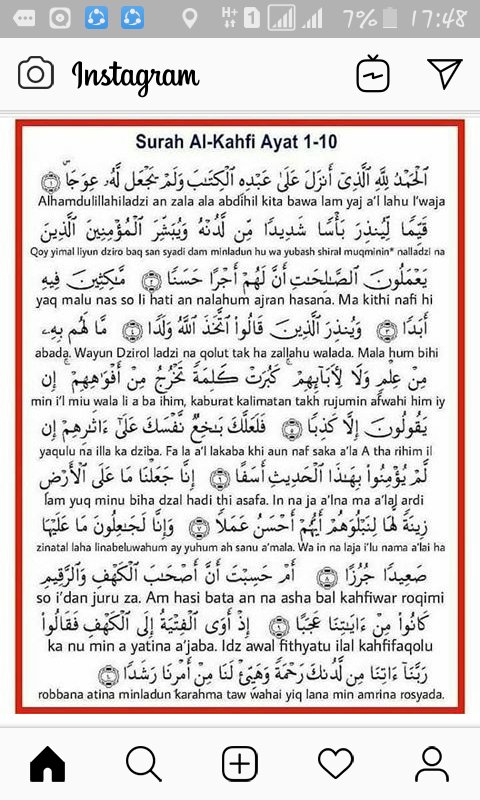 H+ 1 7% 17:48
Instagram
Surah Al-Kahfi Ayat 1-10
ٱلْحَمْدُ لِلَّهِ ٱلَّذِىٓ أَنزَلَ عَلَىٰ عَبْدِهِ ٱلْكِتَٰبَ وَلَمْ يَجْعَل لَّهُۥ عِوَجَا ۜ ﴿١﴾
Alhamdulillahiladzi an zala ala abdihil kita bawa lam yaj a'l lahu I'waja
قَيِّمًا لِّيُنذِرَ بَأْسًا شَدِيدًا مِّن لَّدُنْهُ وَيُبَشِّرَ ٱلْمُؤْمِنِينَ ٱلَّذِينَ
Qoy yimal liyun dziro baq san syadi dam minladun hu wa yubash shiral muqminin* nalladzi na
يَعْمَلُونَ ٱلصَّٰلِحَٰتِ أَنَّ لَهُمْ أَجْرًا حَسَنًا ﴿٢﴾ مَّٰكِثِينَ فِيهِ
yaq malu nas so li hati an nalahum ajran hasana. Ma kithi nafi hi
أَبَدًا ﴿٣﴾ وَيُنذِرَ ٱلَّذِينَ قَالُوا۟ ٱتَّخَذَ ٱللَّهُ وَلَدًا ﴿٤﴾ مَّا لَهُم بِهِۦ
abada. Wayun Dzirol ladzi na qolut tak ha zallahu walada. Mala hum bihi
مِنْ عِلْمٍ وَلَا لِءَابَآئِهِمْ ۚ كَبُرَتْ كَلِمَةً تَخْرُجُ مِنْ أَفْوَٰهِهِمْ ۚ إِن
min i'l miu wala li a ba ihim, kaburat kalimatan takh rujumin afwahi him iy
يَقُولُونَ إِلَّا كَذِبًا ﴿٥﴾ فَلَعَلَّكَ بَٰخِعٌ نَّفْسَكَ عَلَىٰٓ ءَاثَٰرِهِمْ إِن
yaqulu na illa ka dziba. Fa la a'l lakaba khi aun naf saka a'la A tha rihim il
لَّمْ يُؤْمِنُوا۟ بِهَٰذَا ٱلْحَدِيثِ أَسَفًا ﴿٦﴾ إِنَّا جَعَلْنَا مَا عَلَى ٱلْأَرْضِ
lam yuq minu biha dzal hadi thi asafa. In na ja a'lna ma a'lal ardi
زِينَةً لَّهَا لِنَبْلُوَهُمْ أَيُّهُمْ أَحْسَنُ عَمَلًا ﴿٧﴾ وَإِنَّا لَجَٰعِلُونَ مَا عَلَيْهَا
zinatal laha linabeluwahum ay yuhum ah sanu a'mala. Wa in na laja i'lu nama a'lai ha
صَعِيدًا جُرُزًا ﴿٨﴾ أَمْ حَسِبْتَ أَنَّ أَصْحَٰبَ ٱلْكَهْفِ وَٱلرَّقِيمِ
so i'dan juru za. Am hasi bata an na asha bal kahfiwar roqimi
كَانُوا۟ مِنْ ءَايَٰتِنَا عَجَبًا ﴿٩﴾ إِذْ أَوَى ٱلْفِتْيَةُ إِلَى ٱلْكَهْفِ فَقَالُوا۟
ka nu min a yatina a'jaba. Idz awal fithyatu ilal kahfifaqolu
رَبَّنَآ ءَاتِنَا مِن لَّدُنكَ رَحْمَةً وَهَيِّئْ لَنَا مِنْ أَمْرِنَا رَشَدًا
robbana atina minladun karahma taw wahai yiq lana min amrina rosyada.